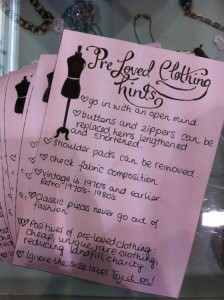 Pre Loved Clothing
hints
go in with an open mind
buttons and zippers can be
replaced, hems lengthened
and shortened.
Shoulder pads can be removed
check fabric composition
vintage is 1970's and earlier
Retro - 1970's - 1980's
Classic pieces never go out of
fashion
Positives of pre-loved clothing
cheap, unique, rare clothing,
reducing landfill, charity
ignore the size label. Try it on!